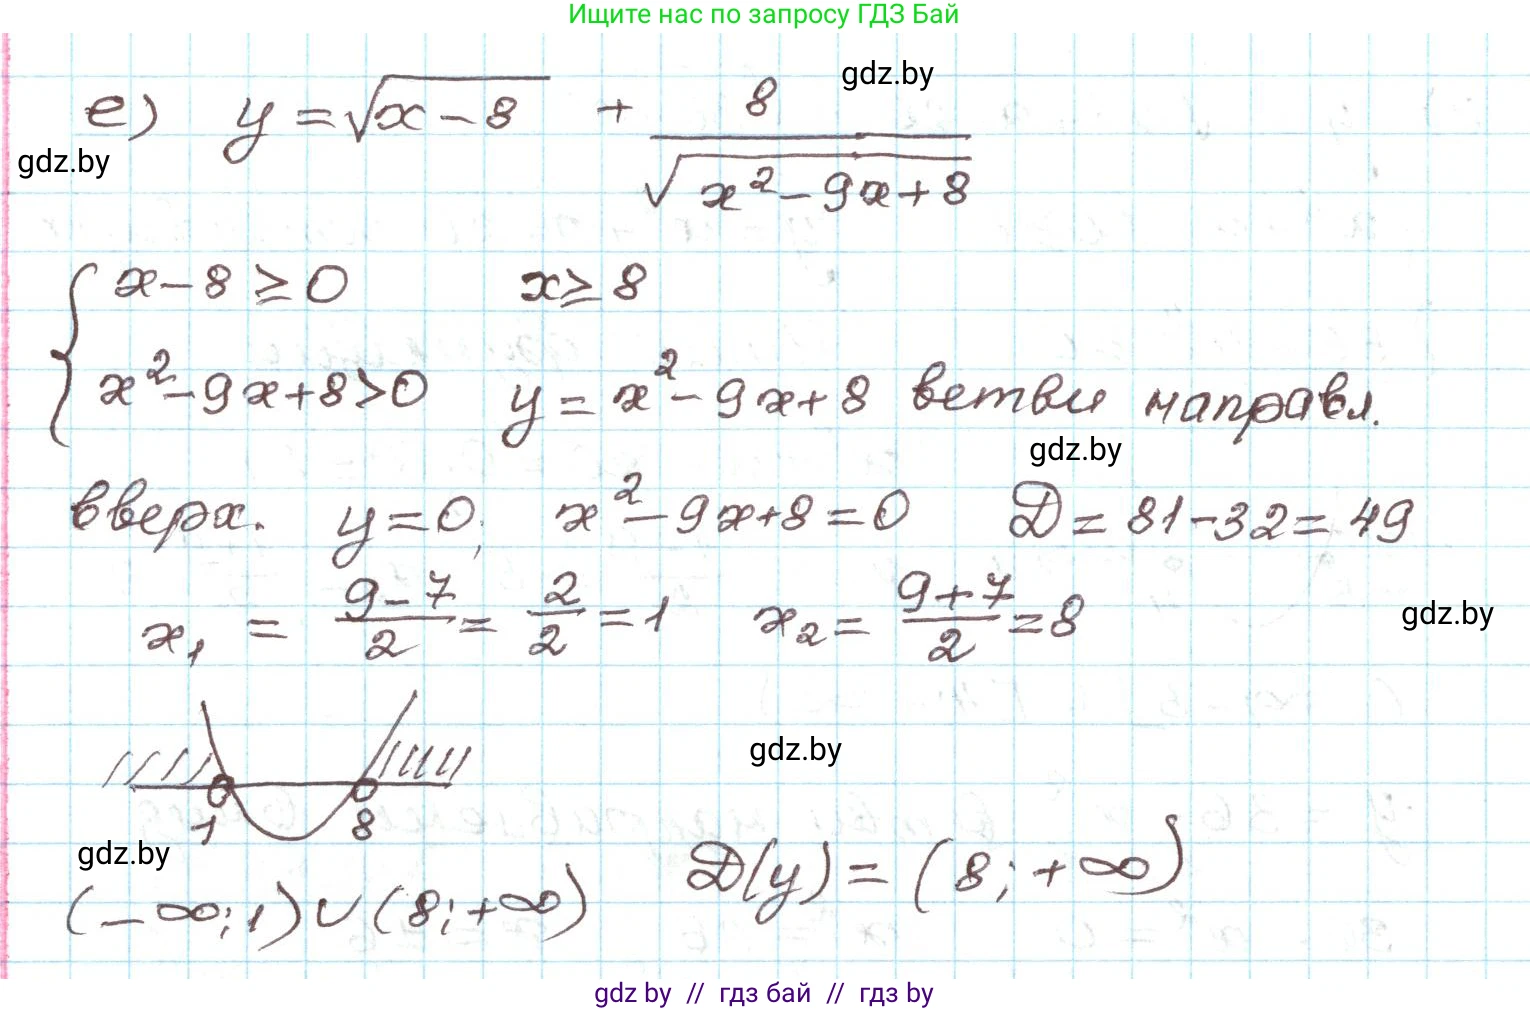 Ищите нас по запросу ГДЗ Бай
gdz.by
е) y = √(x – 8) + 8/√(x² – 9x + 8)
gdz.by
{ x – 8 ≥ 0    x ≥ 8
x² – 9x + 8 > 0    y = x² – 9x + 8 ветви направл.
gdz.by
вверх. y = 0; x² – 9x + 8 = 0    D = 81 – 32 = 49
x₁ = (9 – 7)/2 = 2/2 = 1    x₂ = (9 + 7)/2 = 8
gdz.by
gdz.by
1 8
gdz.by
(– ∞; 1) ∪ (8; + ∞)    D(y) = (8; + ∞)
gdz by // гдз бай // гдз by